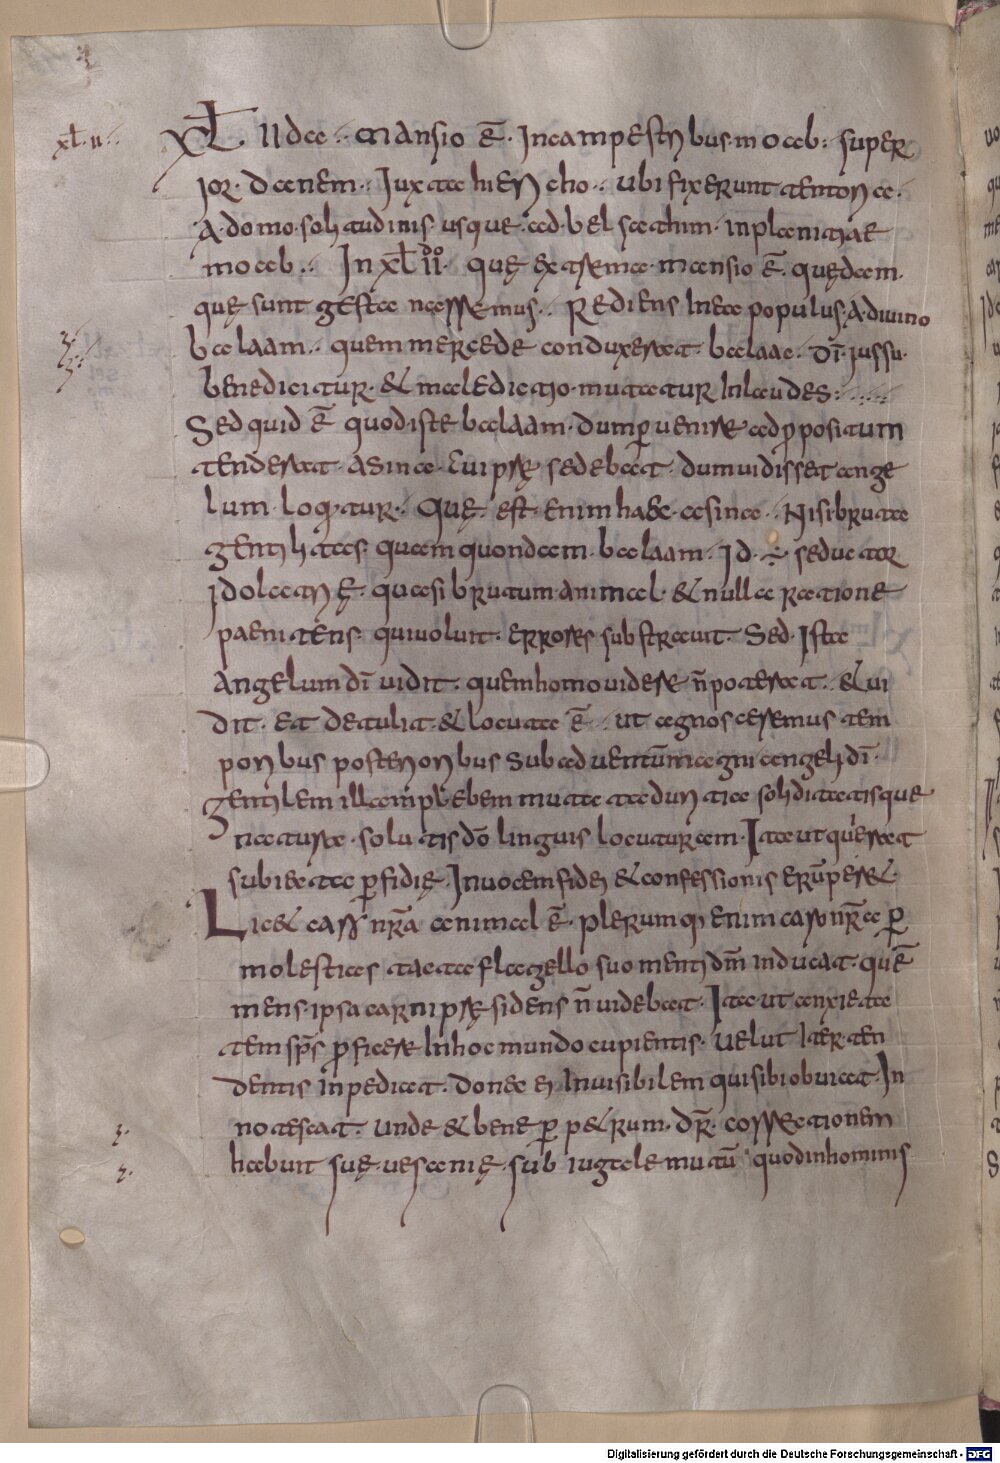 xl.ii.
XL IIda. mansio ē. In campestribus moab. super
ior danem. Iuxta hiericho. ubi fixerunt tentoria.
A domo solitudinis usque ad belsathim. in planitiae
moab. In xlii do. quę extrema mansio ē. quędam
quę sunt gesta narremus. Rediens in ea populus. A diuino
balaam. quem mercede conduxerat balaac. dī iussu.
benedicitur. & maledictio mutatur in laudes.
Sed quid ē quod iste balaam. dum puenire ad propositum
tenderat. asina. cui pr̨ę sedebat. dum uidisset ange
lum loqtur. Quę est enim haec asina. Nisi bruta
gentilitas. quam quondam balaam. id ÷ seductor
idolatrię. quasi brutum animal. & nulla ratione
paenitens. quiuoluit. errores substrauit. Sed ista
angelum dī uidit. quem homo uidere ñ poterat. & ui
dit. et detulit. & locuta ē. ut agnosceremus tem
poribus posterioribus sub aduentū magni angeli dī.
gentilem illam plebem mutata ad duritia soliditatisque
natura. solutis dō linguis locuturam. Ita ut q̇uerat
subiecta pfidię. In uocem fidei & confessionis erūpere.
Lic& carn̄ nr̄a animal ē. plerumq enim caro nr̄a p
molestias tacta flagello suo menti dm̄ inducat. quē
mens ipsa carni pr̨ę sidens ñ uidebat. Ita ut anxieta
tem sp̄s pficere in hoc mundo cupientis. uelut iter ten
dentis inpedicat. donec ei inuisibilem qui sibi obuiat. In
notescat. unde & bene p p&rum. dr̄. correctionem
habuit suę uesanię. sub iugale mutū quod in hominis
Digitalisierung gefördert durch die Deutsche Forschungsgemeinschaft - DFG